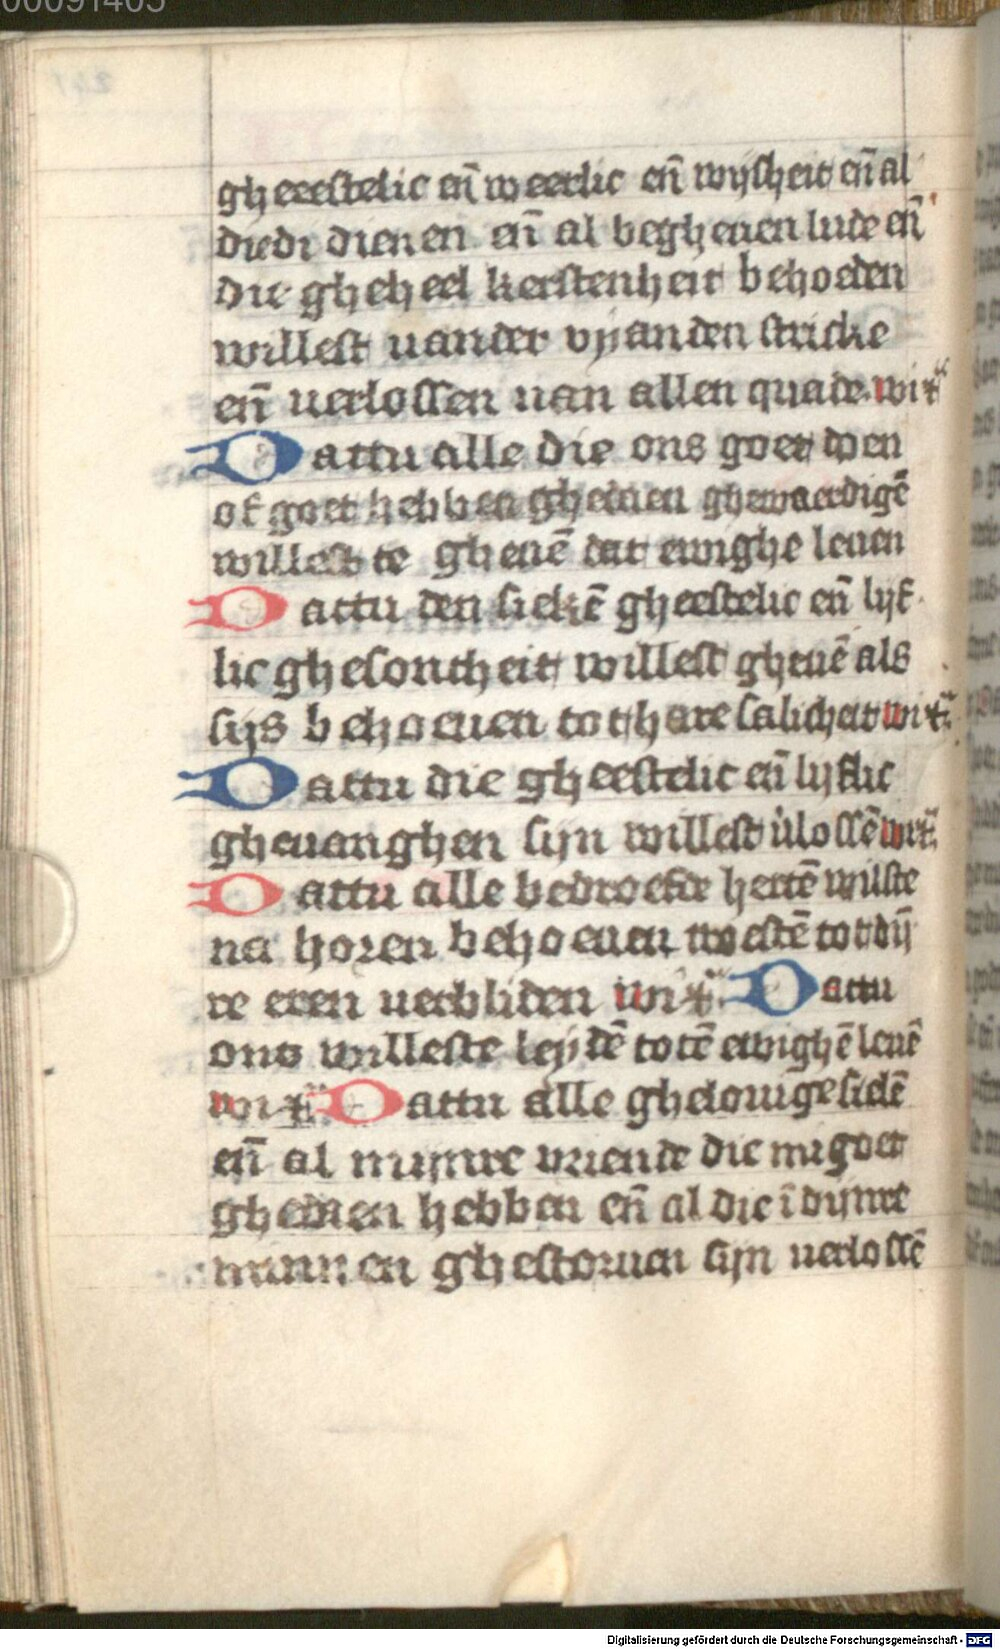 00091405
gheeestelic en̄ weerlic en̄ wijsheit en̄ al
die di dienen en̄ al begheuen lude en̄
die gheheel kerstenheit behoeden
willest uander vijanden stricke
en̄ uerlossen uan allen quade. wi
Dattu alle die ons goet doen
of goet hebben ghedaen ghewaerdigē
willest te gheuē dat ewighe leuen
Dattu den siekē gheestelic en̄ lijf
lic ghesontheit willest gheuē als
sijs behoeuen tot hare salicheit wi
Dattu die gheestelic en̄ lijflic
gheuanghen sijn willest v̓lossē wi
Dattu alle bedroefde hertē wilste
na horen behoeuen troestē tot dij
re eren uerbliden wi Dattu
ons willeste leydē totē ewighē leuē
wi Dattu alle ghelouige sielē
en̄ al mijnre vriende die mi goet
ghedaen hebben en̄ al die ī dijnre
minnen ghestoruen sijn uerlossē
Digitalisierung gefördert durch die Deutsche Forschungsgemeinschaft - DFG